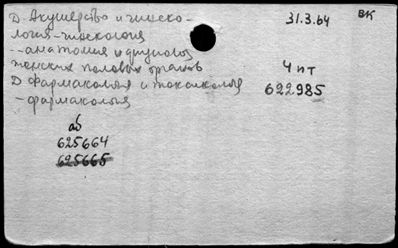 D Акушерство и гинеко-
логия-гинекология
--анатомия и физиология
женских половых органов
D Фармакология и токсикология
-фармакология
31.3.64
вк
4 пт
622985
аб
625664
625665